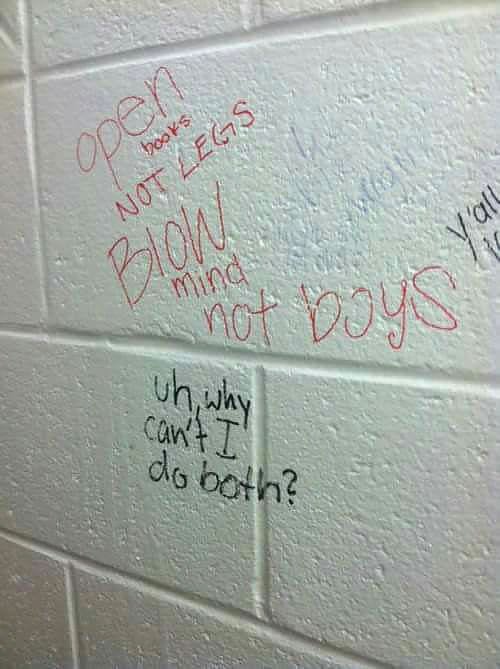 open
books
NOT LEGS
BlOW
mind
not boys
y'all
uh, why
can't I
do both?